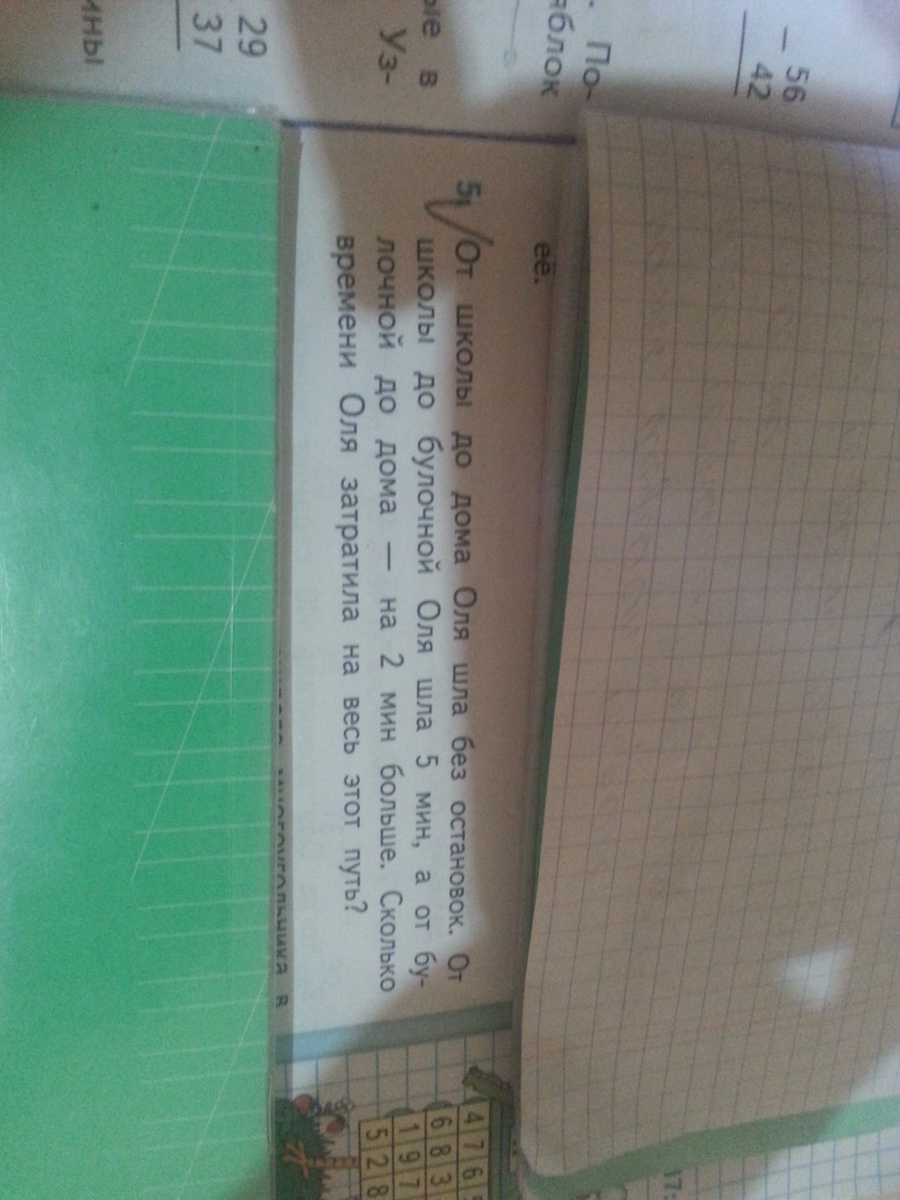 56
– 42
По-
яблок
ые в
Уз-
29
37
ины
её.
5. От школы до дома Оля шла без остановок. От
школы до булочной Оля шла 5 мин, а от бу-
лочной до дома — на 2 мин больше. Сколько
времени Оля затратила на весь этот путь?
многоугольника в
4 7 6
6 8 3
1 9 7
5 2 8
17